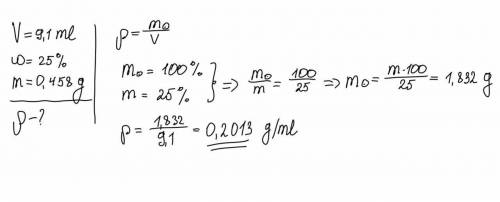 V = 9,1 ml
ω = 25%
m = 0,458 g
ρ - ?
ρ = m₀/V
m₀ = 100%
m = 25%
} => m₀/m = 100/25 => m₀ = m·100/25 = 1,832 g
ρ = 1,832/9,1 = 0,2013 g/ml